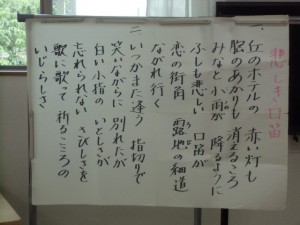 悲しき口笛
一、丘のホテルの 赤い灯も
胸のあかりも 消えるころ
みなと小雨が 降るように
ふしも悲しい 口笛が
恋の街角 露地の細道
ながれ行く
二、いつかまた逢う 指切りで
笑いながらに 別れたが
白い小指の いとしさが
忘れられない さびしさを
歌に歌って 祈るこころの
いじらしさ